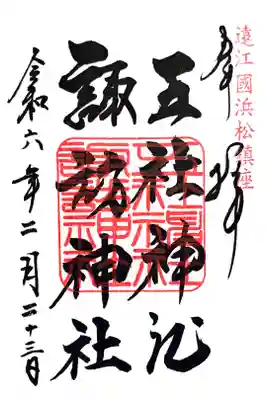 遠江國浜松鎮座
奉拝
五社神社
諏訪神社
令和六年二月二十三日